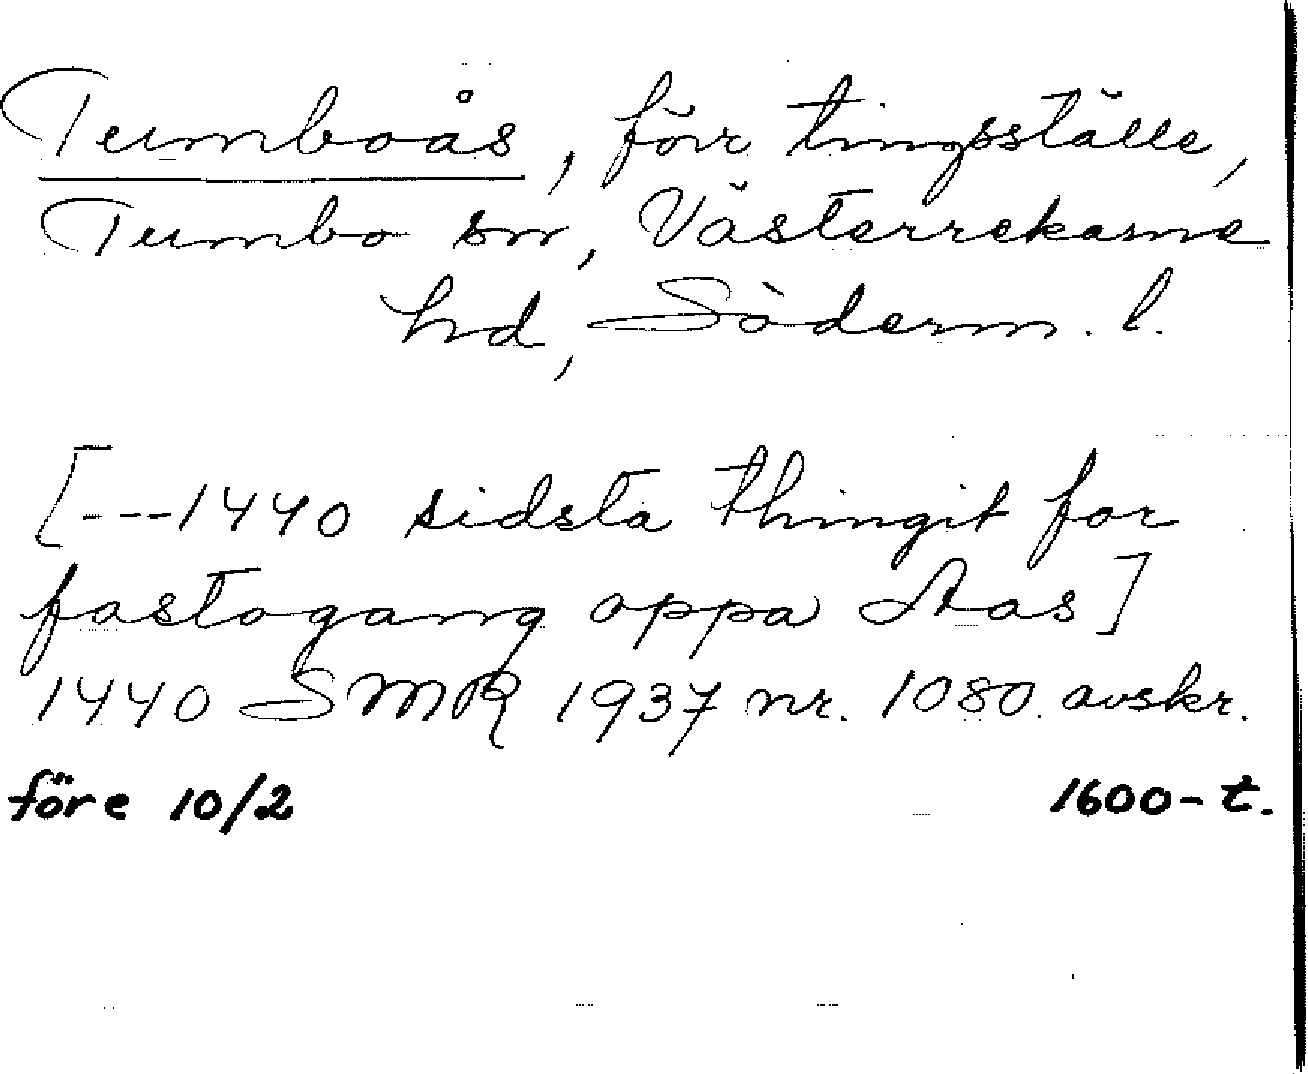 Tumboås, förr tingsställe,
Tumbo sn, Västerrekarne
hd, Söderm. l.
[---1440 sidsta thingit for
fastogang oppa Aas]
1440 SMR 1937 nr. 1080 avskr.
före 10/2 1600-t.